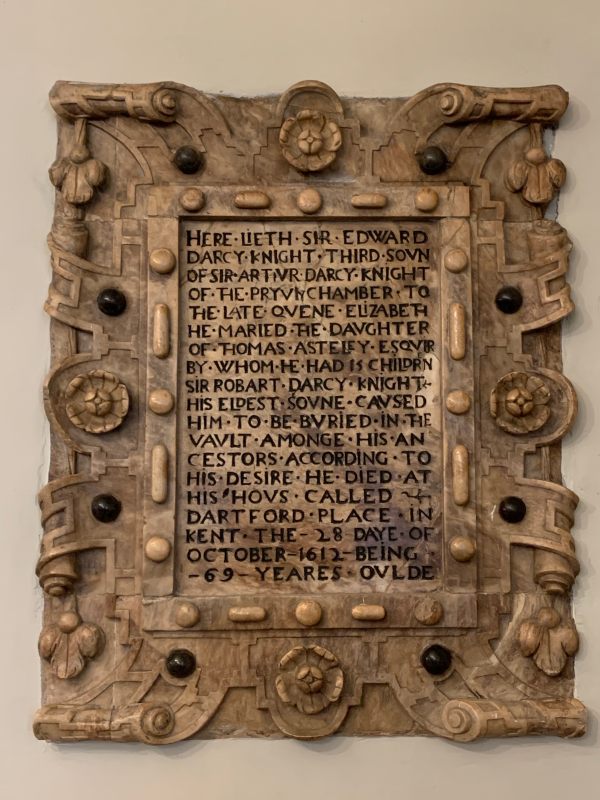 HERE·LIETH·SIR·EDWARD
DARCY·KNIGHT·THIRD·SOVN
OF·SIR·ARTHVR·DARCY·KNIGHT
OF·THE·PRYVIY·CHAMBER·TO
THE·LATE·QVENE·ELIZABETH
HE·MARIED·THE·DAVGHTER
OF·THOMAS·ASTELEY·ESQVIR
BY·WHOM·HE·HAD·15·CHILDRN
SIR ROBART·DARCY·KNIGHT
HIS ELDEST·SOVNE·CAVSED
HIM·TO·BE·BVRIED·IN·THE
VAVLT·AMONGE·HIS·AN
CESTORS·ACCORDING·TO
HIS·DESIRE·HE·DIED·AT
HIS·HOVS·CALLED
DARTFORD·PLACE·IN
KENT·THE-28·DAYE·OF
OCTOBER-1612-BEING
-69-YEARES·OVLDE